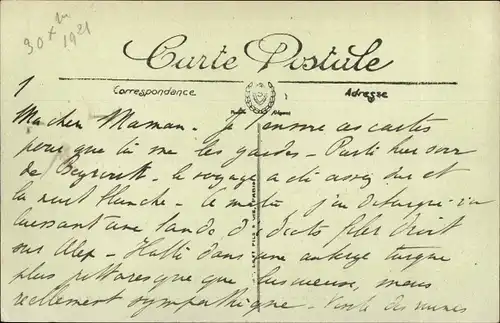 30 Xbre 1921
Carte Postale
Correspondance
Adresse
1
Ma chère Maman. Je t'envoie ces cartes
pour que tu me les gardes - Parti hier soir
de Beyrouth - le voyage a été assez dur et
la nuit blanche - le matin j'ai débarqué ici
laissant une bande d' filer droit
sur Alep - Halte dans une auberge turque
plus pittoresque que luxueuse, mais
réellement sympathique - Visite des ruines